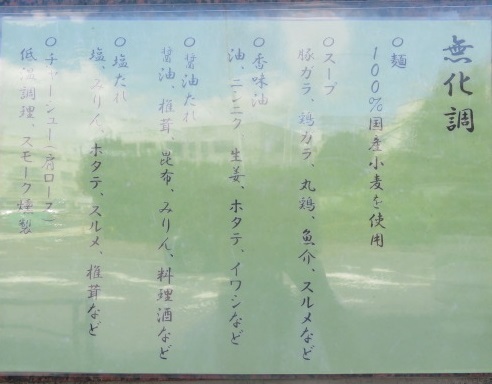 無化調
○麺
100%国産小麦を使用
○スープ
豚ガラ、鶏ガラ、丸鶏、魚介、スルメなど
○香味油
油、ニンニク、生姜、ホタテ、イワシなど
○醤油たれ
醤油、椎茸、昆布、みりん、料理酒など
○塩たれ
塩、みりん、ホタテ、スルメ、椎茸など
○チャーシュー(肩ロース)
低温調理、スモーク特製